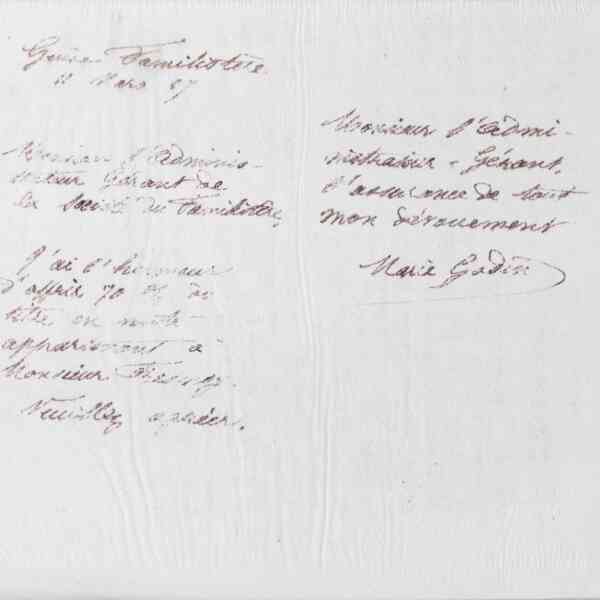 Guise Familistère
12 Mars 97
Monsieur l'Adminis-
trateur Gérant de
la Société du Familistère,
J'ai l'honneur
d'offrir 70
en
appartenant à
Monsieur
Veuillez agréer,
Monsieur l'Admi-
nistrateur-Gérant,
l'assurance de tout
mon dévouement
Marie Godin